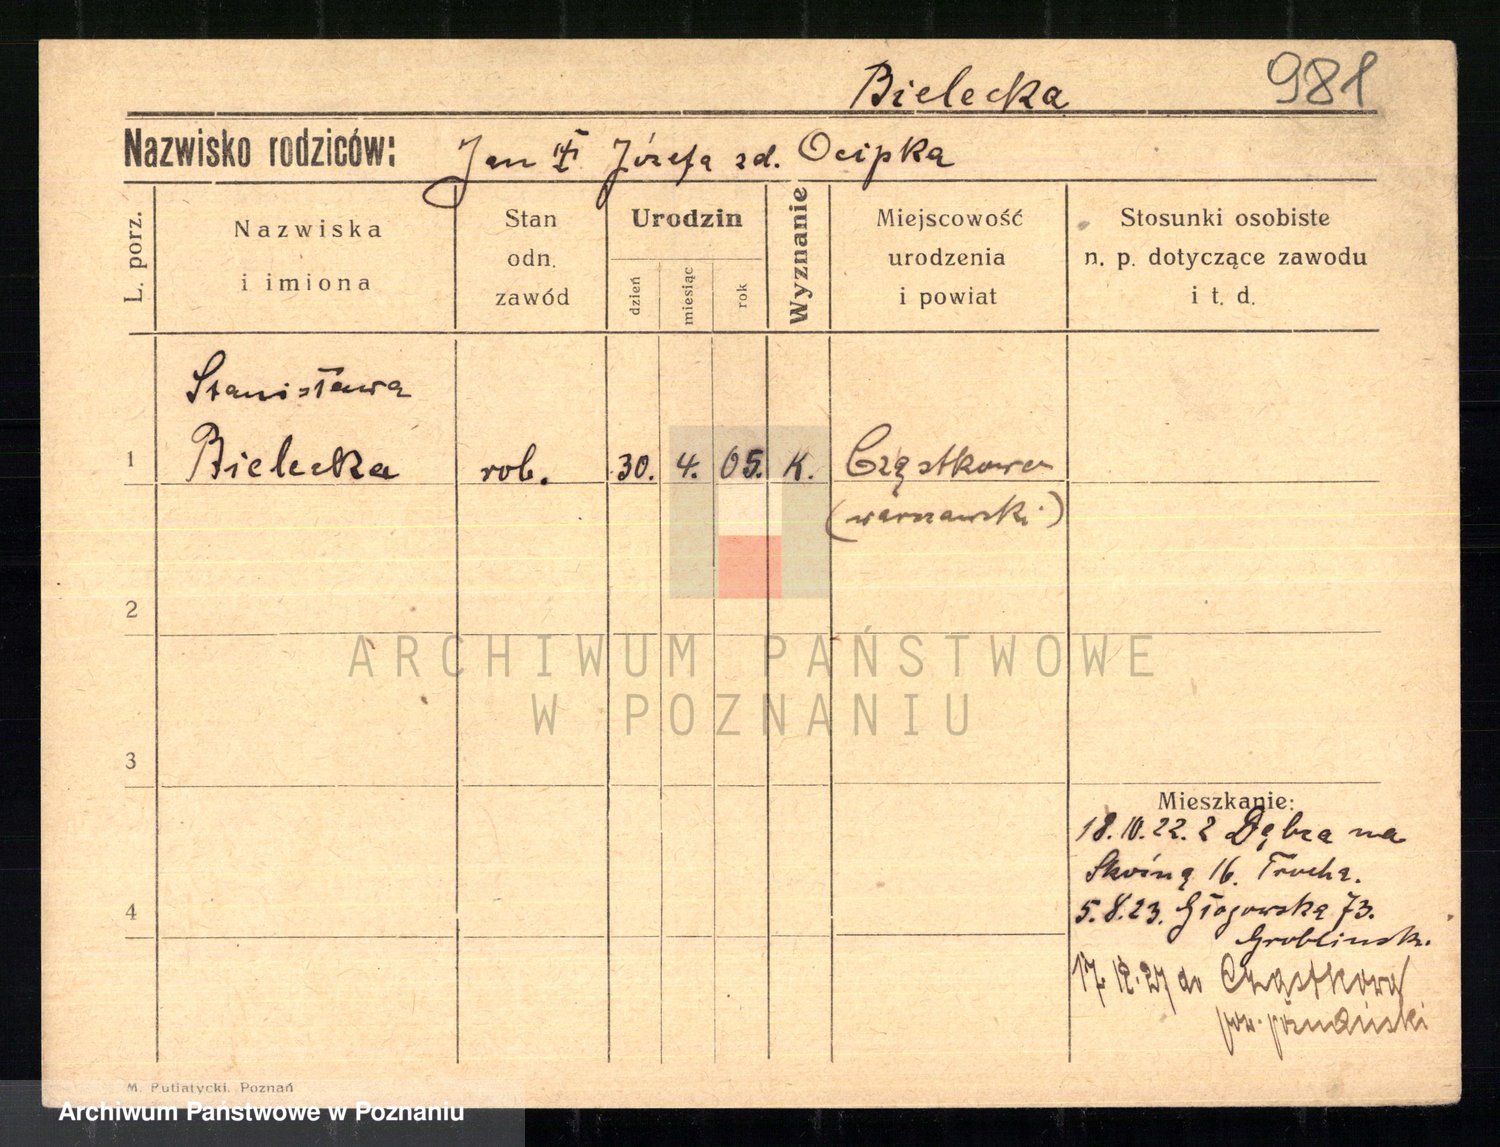 Bielecka 981
Nazwisko rodziców: Jan Józefa zd. Ocipka
L. porz.
Nazwiska
i imiona
Stan
odn.
zawód
Urodzin
dzień
miesiąc
rok
Wyznanie
Miejscowość
urodzenia
i powiat
Stosunki osobiste
n. p. dotyczące zawodu
i t. d.
Stanisława
1 Bielecka rob. 30. 4. 05. K. Cząstkowo
(warszawski)
2
ARCHIWUM PAŃSTWOWE
W POZNANIU
3
Mieszkanie:
18.10.22. z Dębca na
16. Trocha.
4
5.8.23. Głogowska 73.
Groblinsk.
17. 27 do Cząstkowa
pow. poznański
M. Putiatycki, Poznań
Archiwum Państwowe w Poznaniu